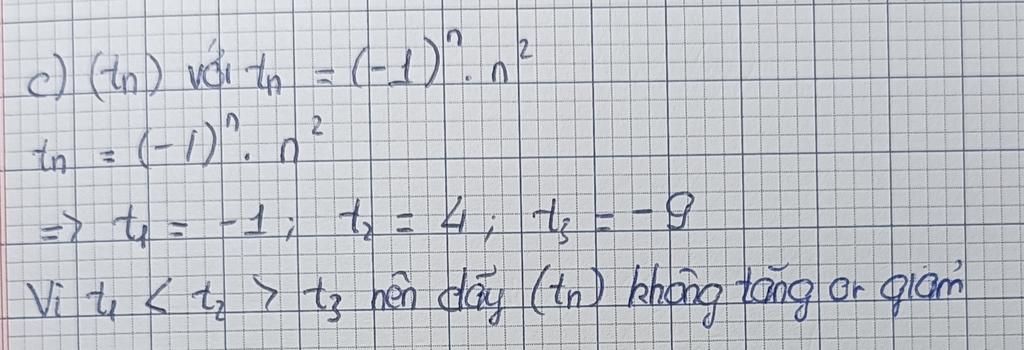 c) (tn) với tn = (-1)ⁿ. n²
tn = (-1)ⁿ. n²
=> t₁ = -1; t₂ = 4; t₃ = -9
Vì t₁ < t₂ > t₃ nên dãy (tn) không tăng or giảm